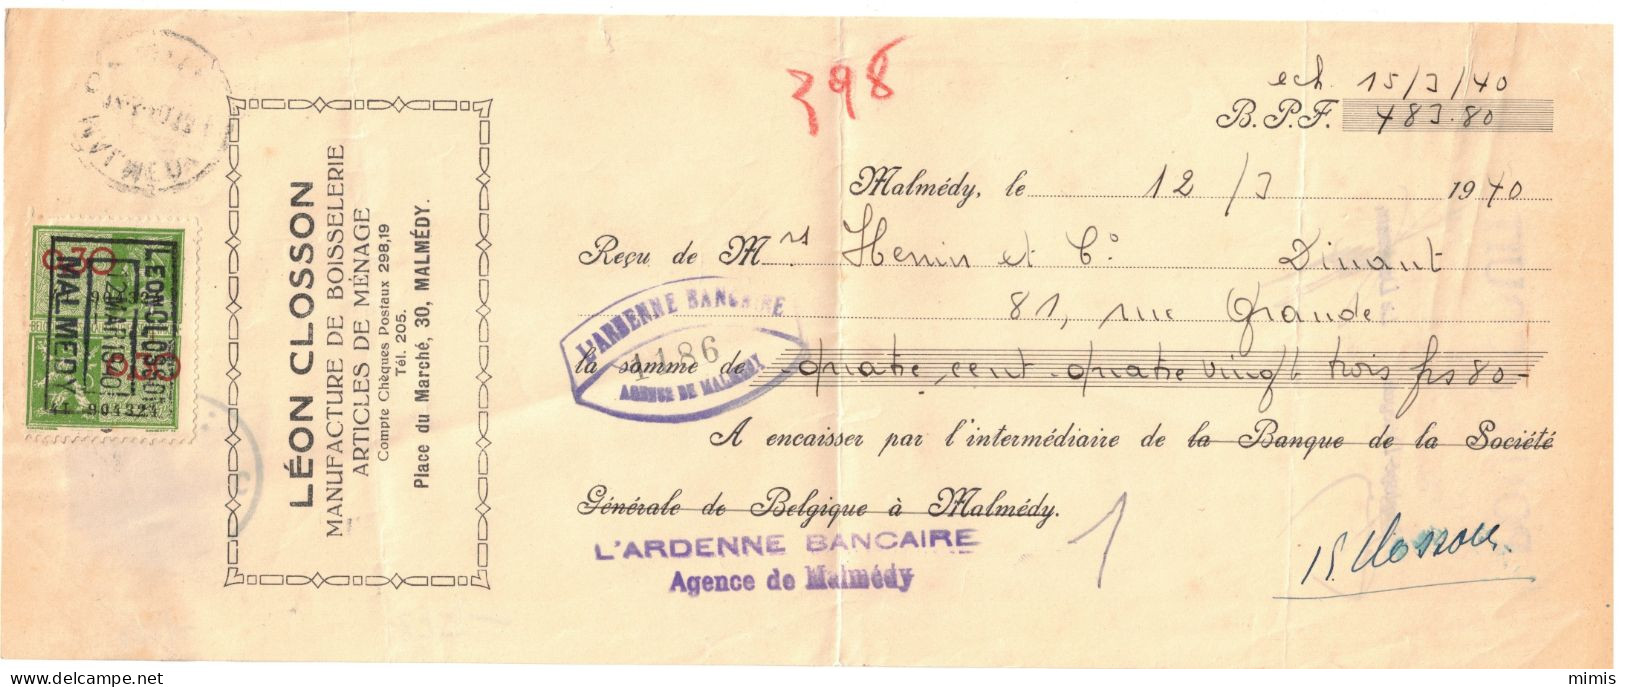 LÉON CLOSSON
MANUFACTURE DE BOISSELERIE
ARTICLES DE MÉNAGE
Compte Chèques Postaux 298,19
Tél. 205.
Place du Marché, 30, MALMÉDY.
0.30
LEON CLOSSON
MALMEDY
904324
398
ech. 15/3/40
B.P.F. 483.80
Malmédy, le 12/3 1940
Reçu de Mrs Henin et Co Dinant
81, rue Grande
la somme de quatre cent quatre vingt trois frs 80
L'ARDENNE BANCAIRE
1186
AGENCE DE MALMEDY
A encaisser par l'intermédiaire de la Banque de la Société
Générale de Belgique à Malmédy.
L'ARDENNE BANCAIRE
Agence de Malmédy
1
Closson
mimis